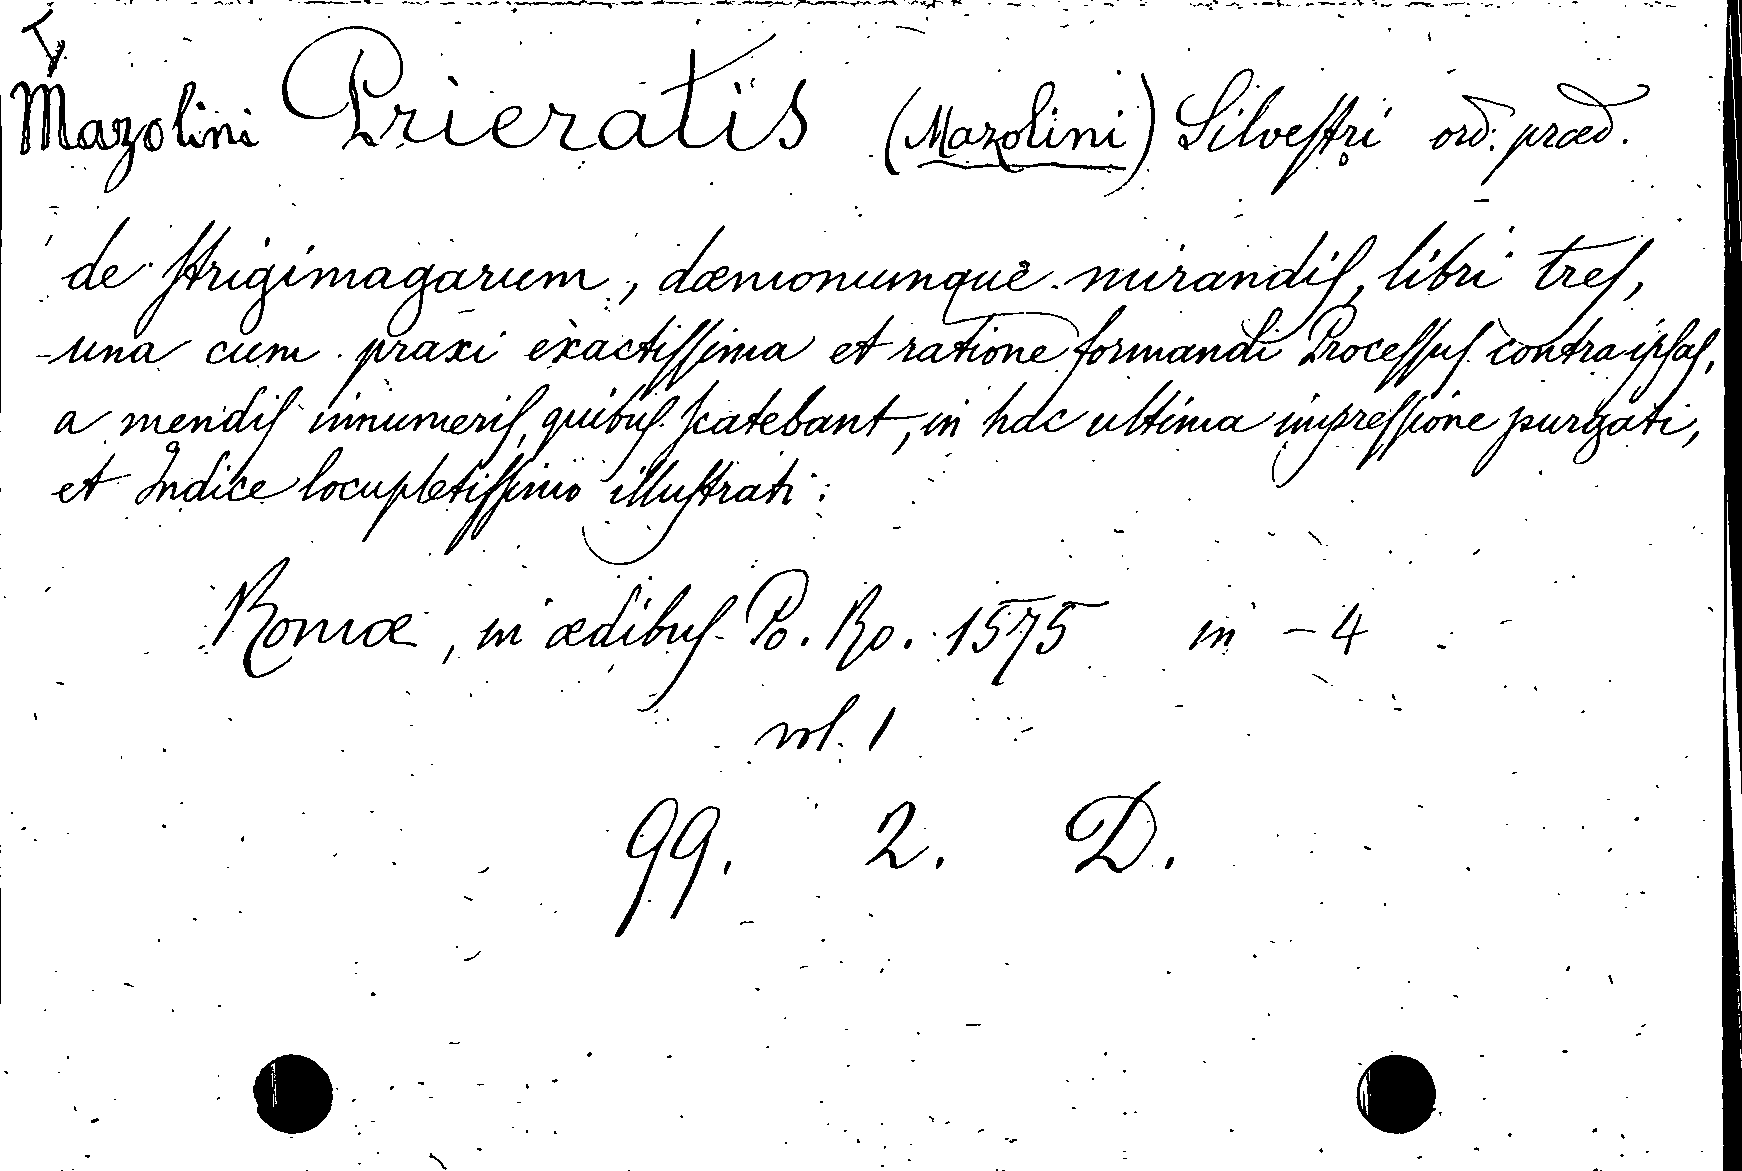 Mazolini Prieratis (Mazolini) Silveſtri ord: præd.
de ſtrigimagarum, dæmonumque mirandiſ, libri treſ,
una cum praxi exactiſſima et ratione formandi Proceſſuſ contra ipſaſ,
a mendiſ innumeriſ, quibuſ ſcatebant, in hac ultima impreſſione purgati,
et Indice locupletiſſimo illuſtrati:
Romæ, in ædibuſ Po. Ro. 1575 in - 4
vol. 1
99. 2. D.